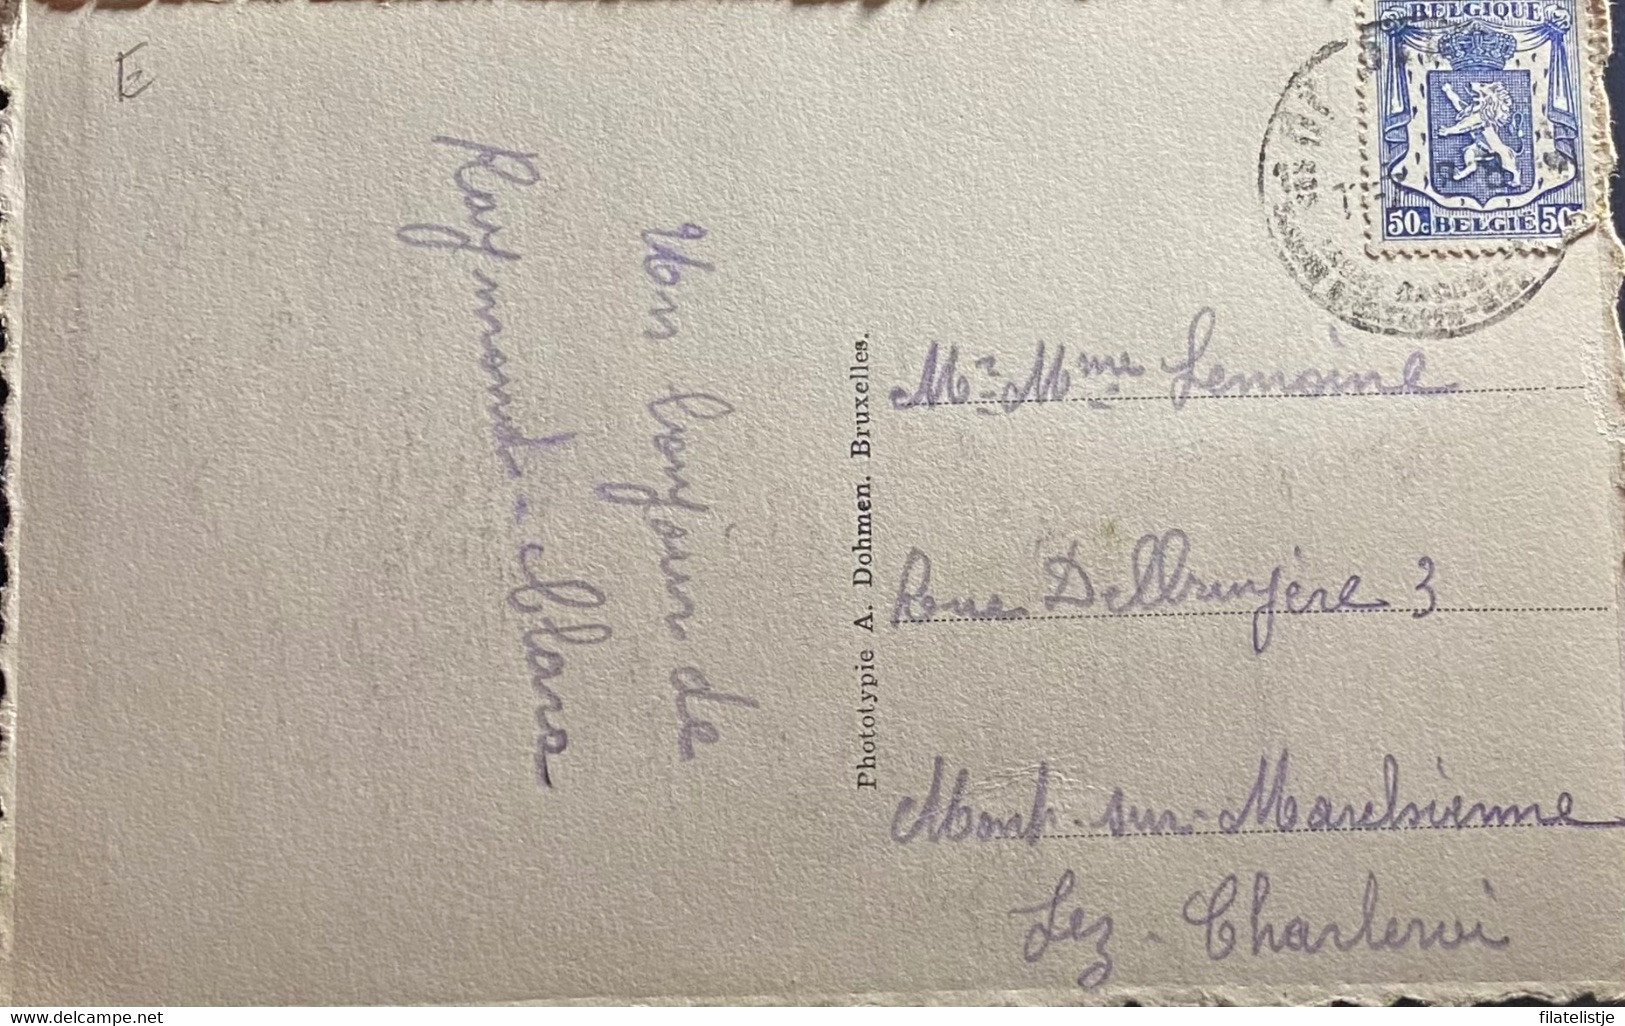 E
Un bonjour de
Raymond - Clara
Phototypie A. Dohmen. Bruxelles.
BELGIQUE
50c BELGIË 50c
Mr. Mme Lemoine
Rue Dellbruyère 3
Mont-sur-Marchienne
Lez-Charleroi
filatelistje